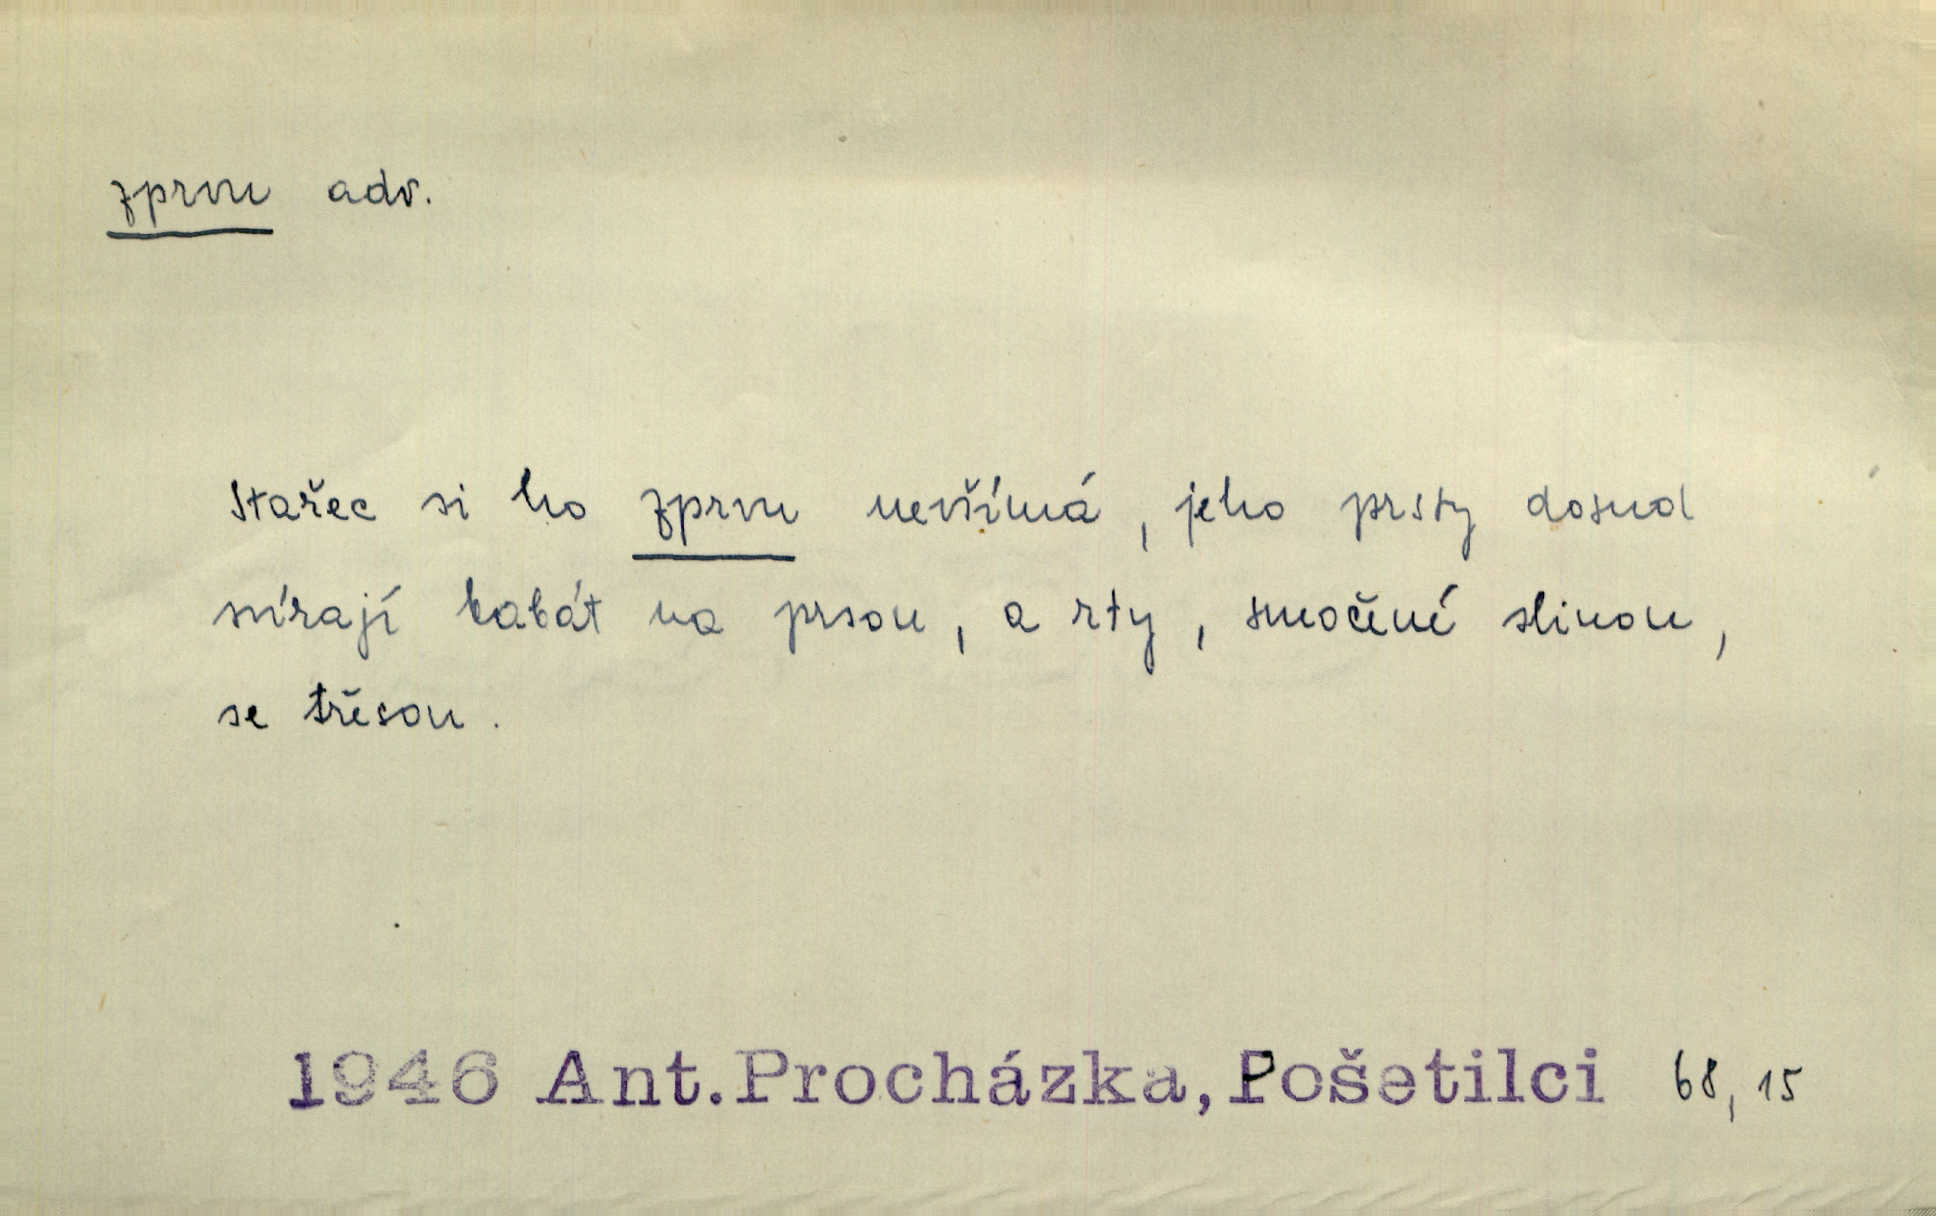 zprvu adv.
Stařec si ho zprvu nevšímá, jeho prsty dosud
svírají kabát na prsou, a rty, smočené slinou,
se třesou.
1946 Ant.Procházka,Pošetilci 68,15